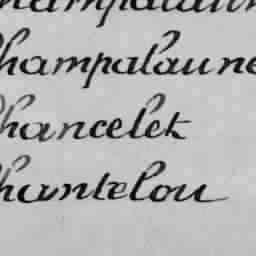 Champalaune
Chancelet
Chantelou